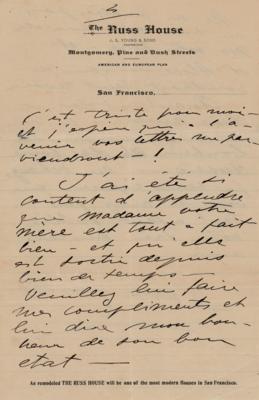 The Russ House
J. S. YOUNG & SONS
PROPRIETORS
Montgomery, Pine and Bush Streets
AMERICAN AND EUROPEAN PLAN
San Francisco,
C'est triste pour moi -
et j'espère qu'à l'a-
venir vos lettres me par-
viendront - !
J'ai été si
content d'apprendre
que madame votre
mère est tout à fait
bien - et qu'elle
est sortie depuis
bien de temps -
Veuillez lui faire
mes compliments et
lui dire mon bon-
heur de son bon
état -
As remodeled THE RUSS HOUSE will be one of the most modern Houses in San Francisco.